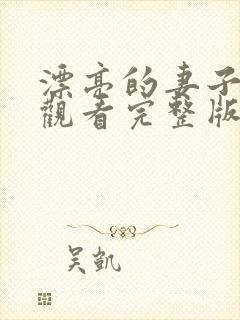 漂亮的妻子
觀看完整版
吴凱